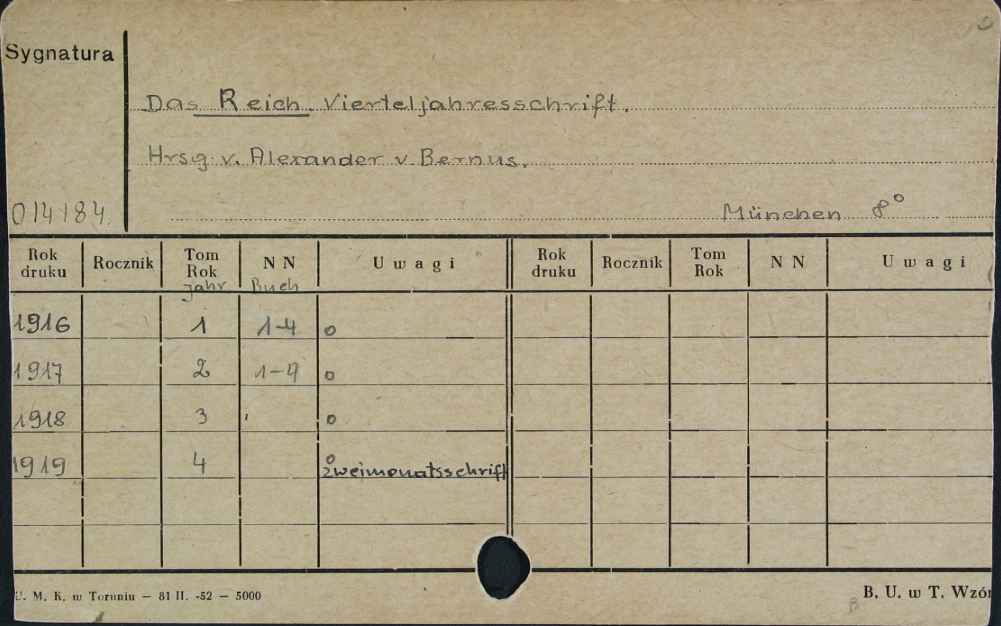 Sygnatura
Das Reich. Vierteljahresschrift.
Hrsg v. Alexander v Bernus.
014184.
München 8°
Rok druku Rocznik Tom Rok N N Uwagi Rok druku Rocznik Tom Rok N N Uwagi
Jahr Buch
1916 1 1-4 o
1917 2 1-4 o
1918 3 o
1919 4 o
Zweimonatsschrift
U. M. K. w Toruniu — 81 II. -52 — 5000
B. U. w T. Wzór